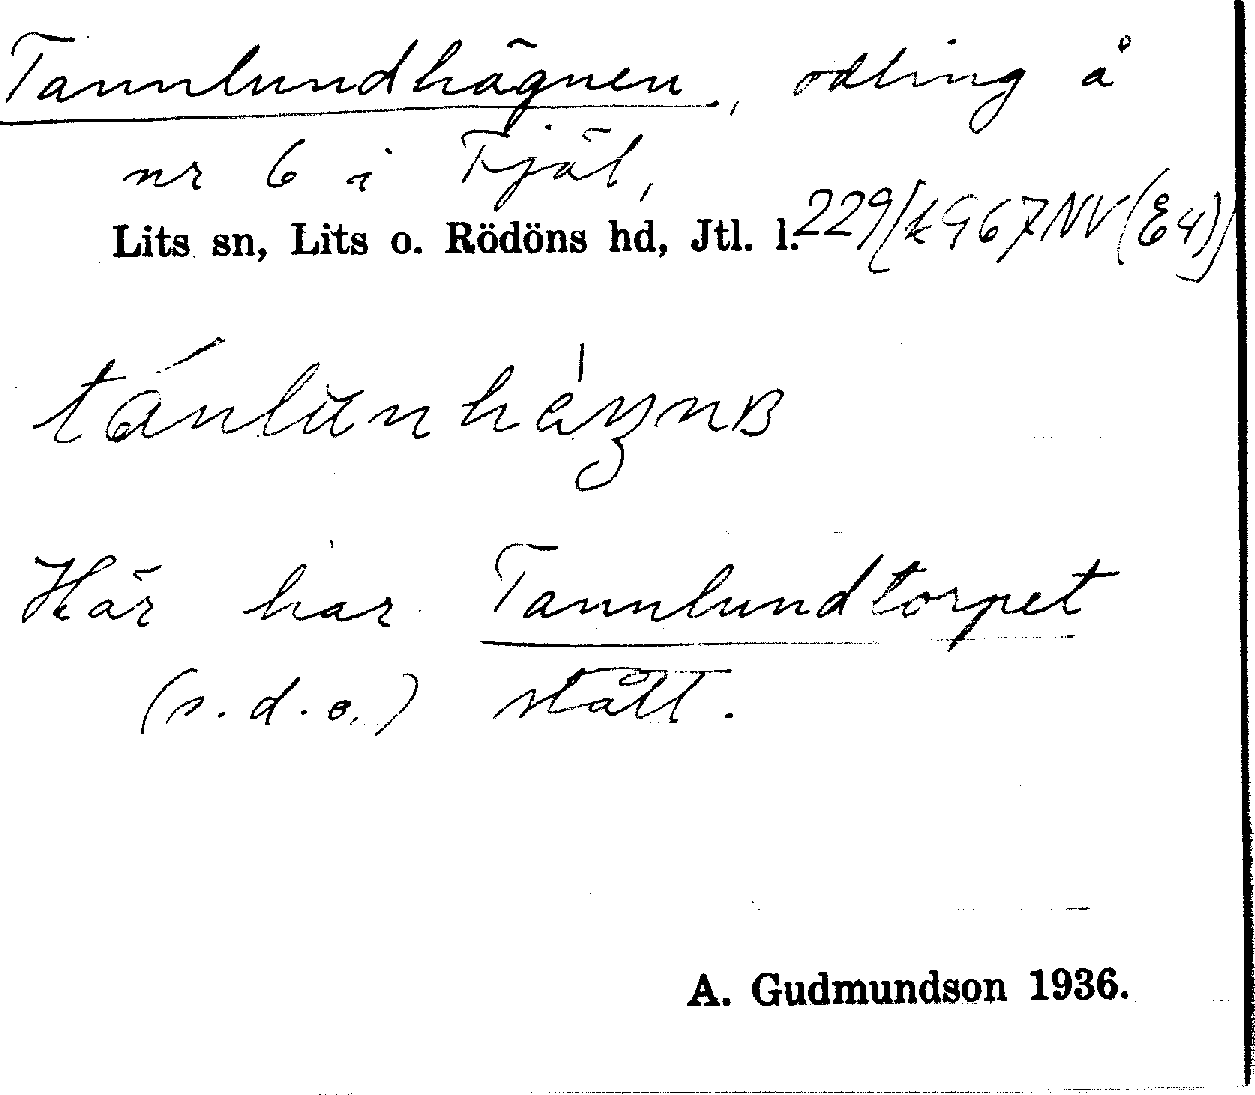 Tannlundhägnen, odling å
nr 6 i Fjäl,
Lits sn, Lits o. Rödöns hd, Jtl. l. 229/[k967NV(E4)]
Här har Tannlundtorpet
(s.d.o.) stått.
A. Gudmundson 1936.